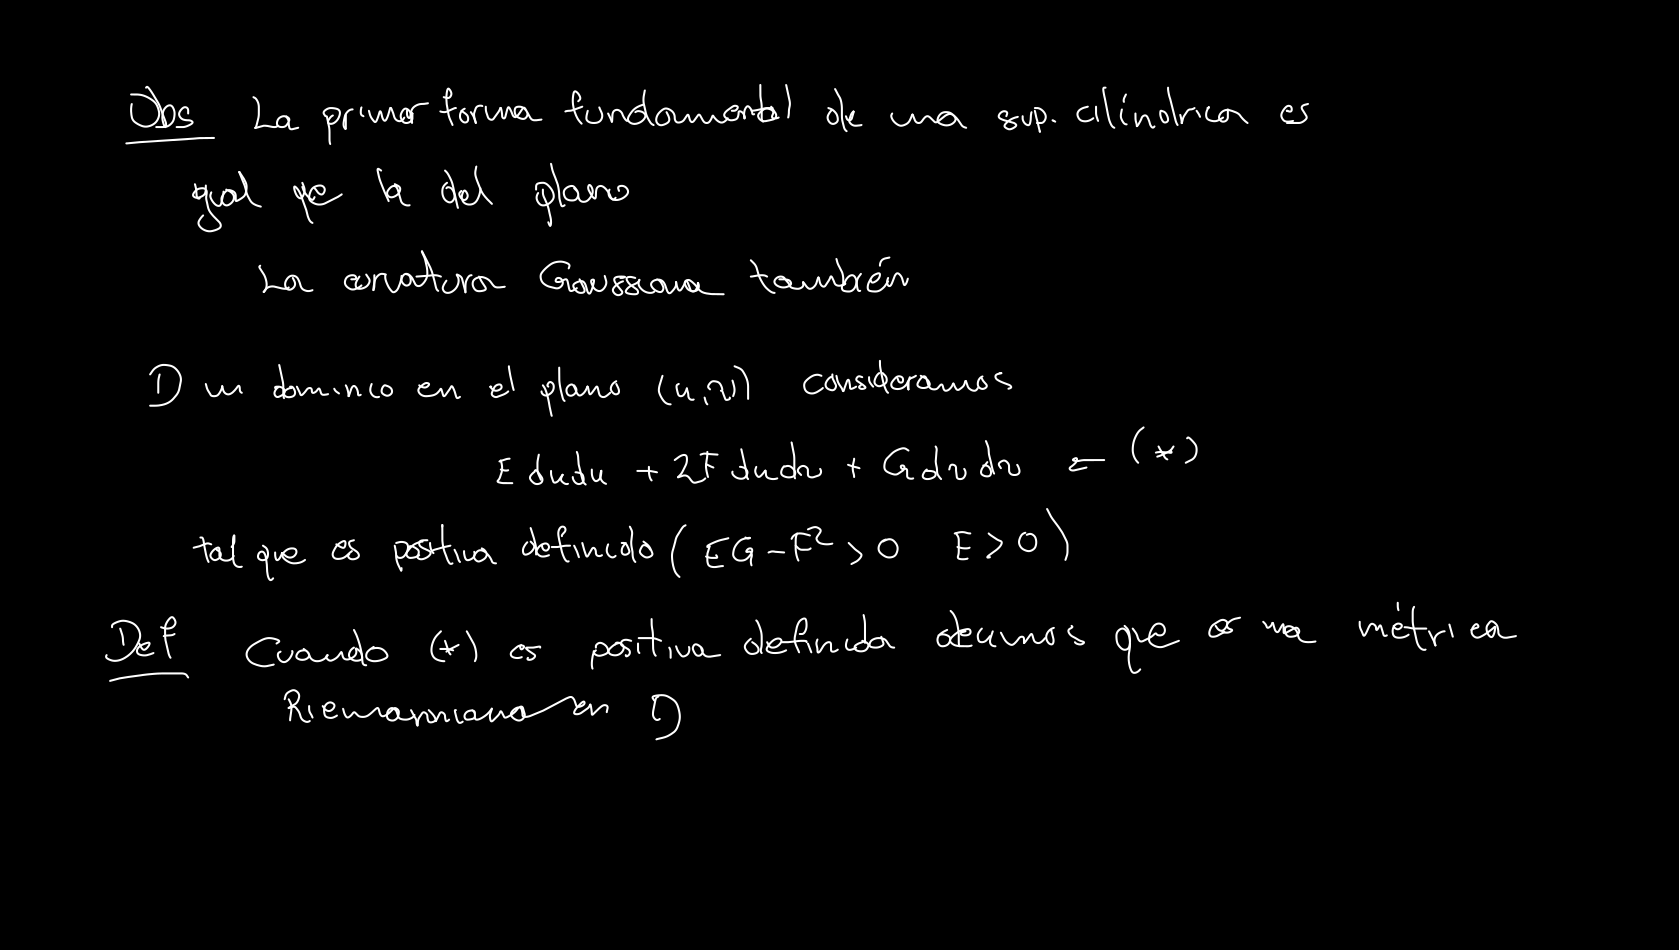 Obs La primer forma fundamental de una sup. cilíndrica es
igual que la del plano
La curvatura Gaussiana también
D un dominio en el plano (u,v) consideramos
E du du + 2F du dv + G dv dv ← (*)
tal que es positiva definido ( EG - F² > 0 E > 0 )
Def Cuando (*) es positiva definida decimos que es una métrica
Riemanniana en D